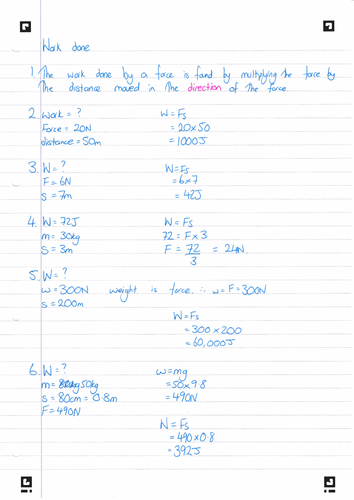 Work done
1. The work done by a force is found by multiplying the force by
the distance moved in the direction of the force.
2. Work = ? W = Fs
Force = 20N = 20 × 50
distance = 50m = 1000J
3. W = ? W = Fs
F = 6N = 6 × 7
s = 7m = 42J
4. W = 72J W = Fs
m = 30kg 72 = F × 3
s = 3m F = 72/3 = 24N
5. W = ?
w = 300N weight is force ∴ w = F = 300N
s = 200m
W = Fs
= 300 × 200
= 60,000J
6. W = ? w = mg
m = 50kg = 50 × 9.8
s = 80cm = 0.8m = 490N
F = 490N
W = Fs
= 490 × 0.8
= 392J